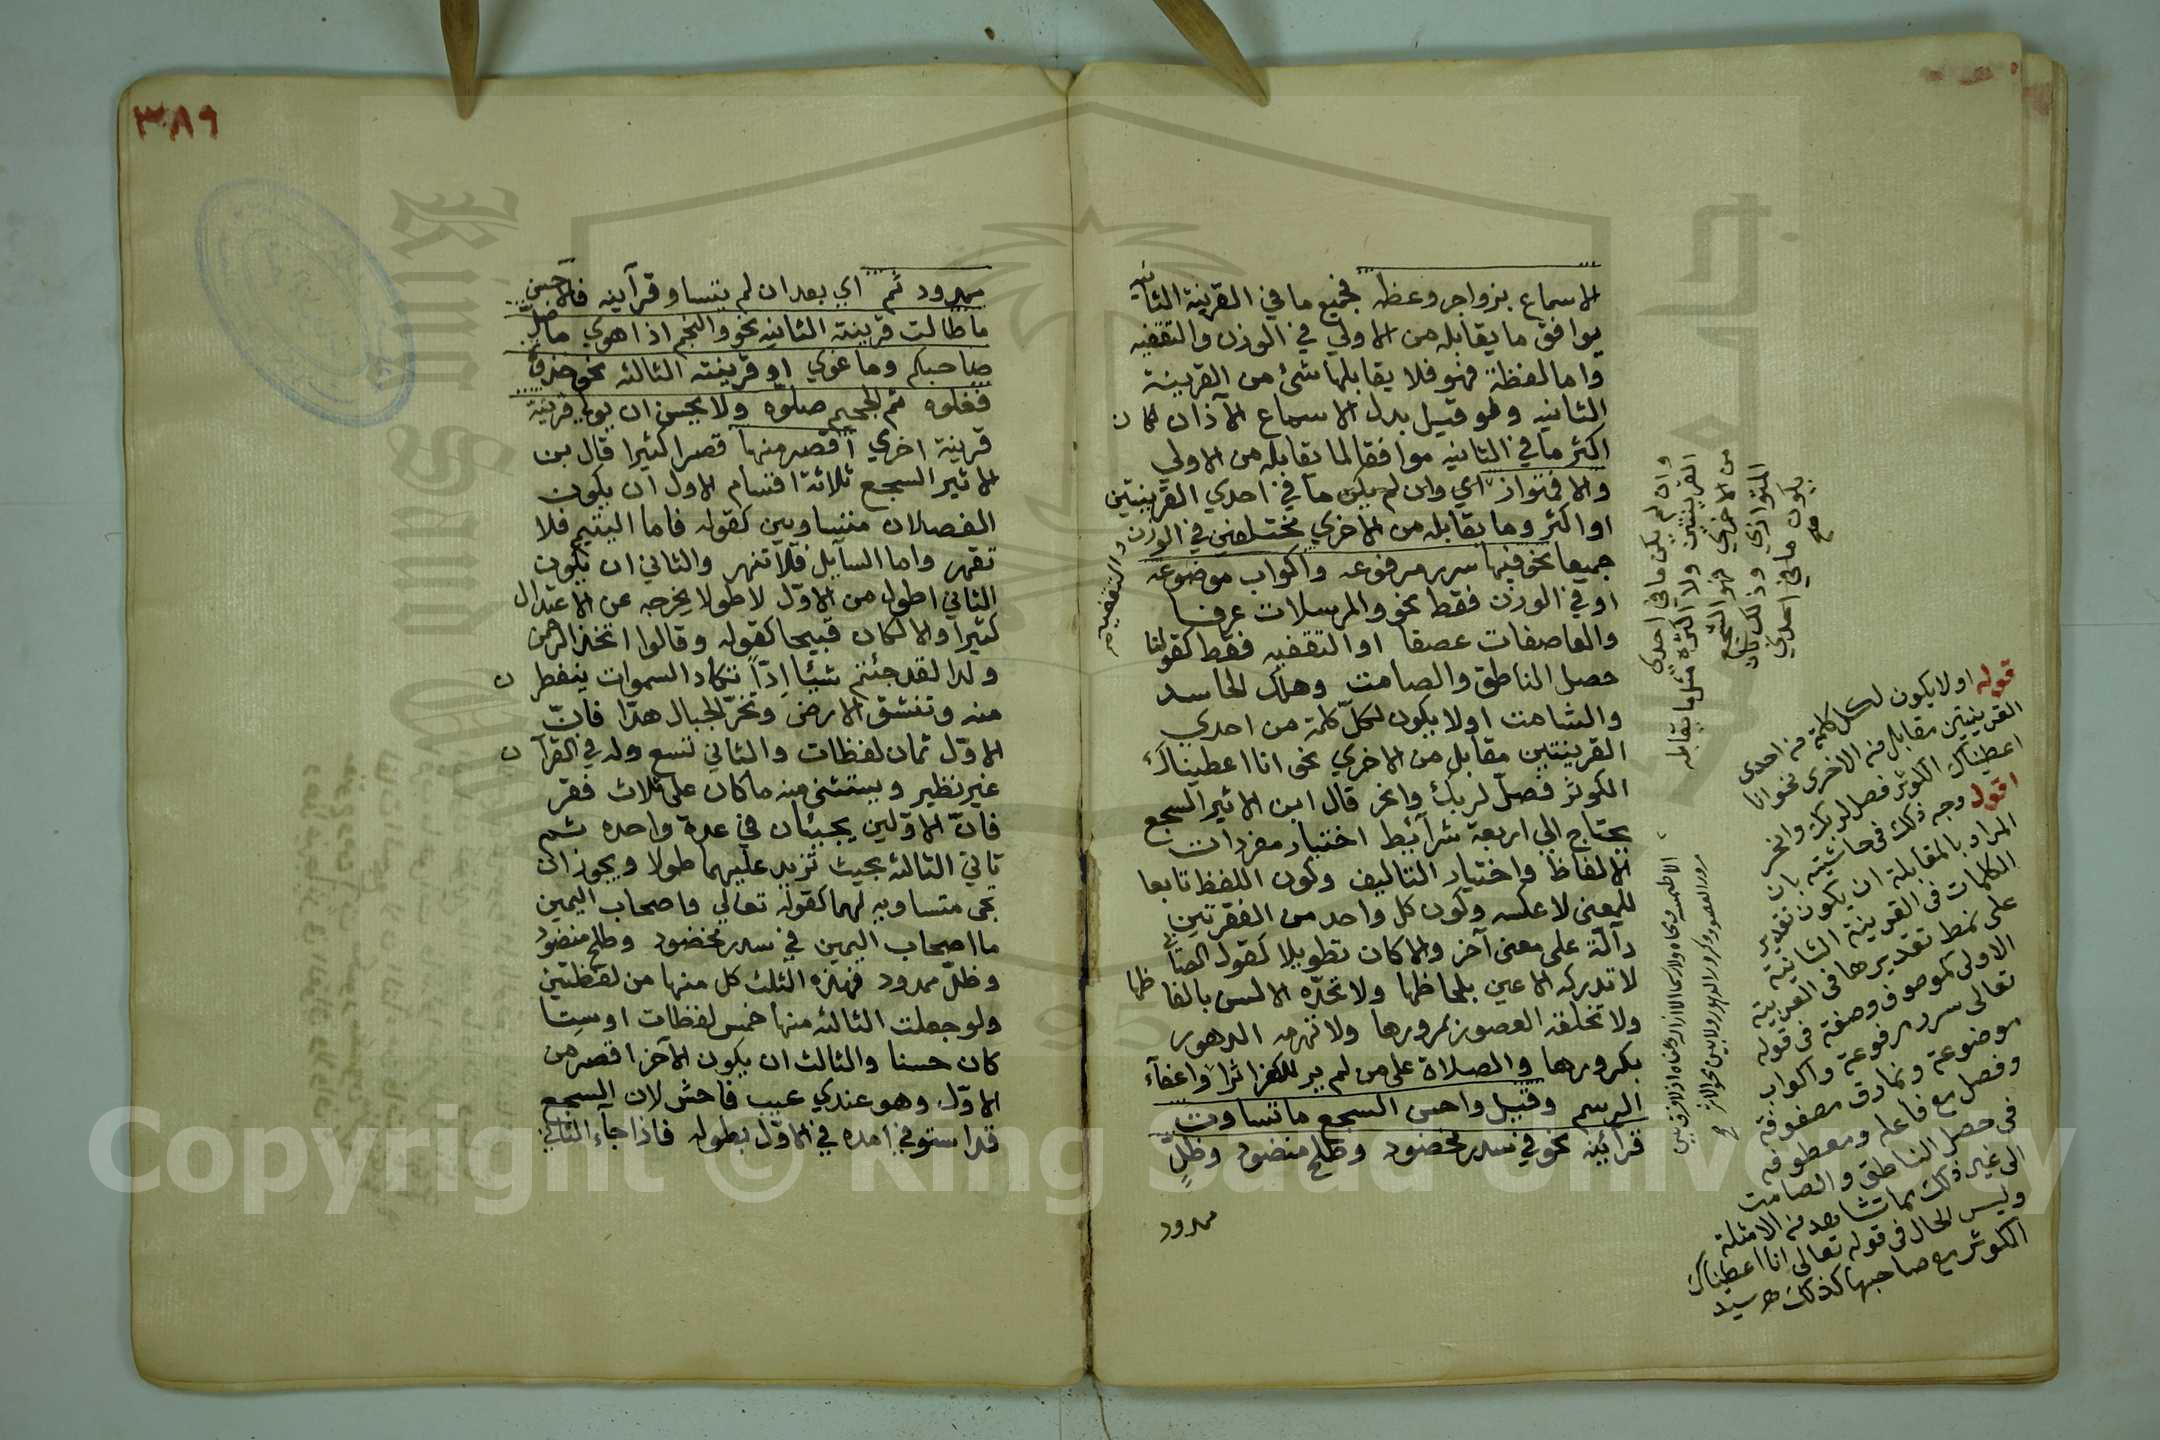 الاسماع بزواجر وعظه فجميع ما في القرينة الثانيه
يوافق ما يقابله من الاولي في الوزن والتقفيه
واما لفظة فهو فلا يقابلها شئ من القرينة
الثانيه ولو قيل بدل الاسماع الآذان لكان
اكثر ما في الثانيه موافقا لما يقابله من الاولي
والا فتواز اي وان لم يكن ما في احدي القرينتين
او اكثر وما يقابله من الاخري مختلفين في الوزن والتقفيه
جميعا نحو فيها سرر مرفوعه واكواب موضوعه
او في الوزن فقط نحو والمرسلات عرفا
والعاصفات عصفا او التقفيه فقط كقولنا
حصل الناطق والصامت وهلك الحاسد
والشامت اولا يكون لكل كلمة من احدي
القرينتين مقابل من الاخري نحو انا اعطيناك
الكوثر فصل لربك وانحر قال ابن الاثير السجع
يحتاج الي اربعة شرآئط اختيار مفردات
الالفاظ واختيار التاليف وكون اللفظ تابعا
للمعني لا عكسه وكون كل واحد من الفقرتين
دآلة علي معني آخر والا كان تطويلا كقول الصابي
لا تدركه الاعين بلحاظها ولا تحده الالسن بالفاظها
ولا تخلقه العصور بمرورها ولا تهرمه الدهور
بكرورها والصلاة علي من لم ير للكفر اثرا واعفآء
الرسم وقيل واحسن السجع ما تساوت
قرآئنه نحو في سدر مخضود وطلح منضود وظلٍ
ممدود
وان لم يكن ما في احدي
القرينتين ولا اكثره مثل ما يقابله
من الاخري فهو السجع
المتوازي وذلك بان
يكون ما في احدي
صح
قوله او لا يكون لكل كلمة من احدى
القرينتين مقابل من الاخرى نحو انا
اعطيناك الكوثر فصل لربك وانحر
اقول وجه ذلك في حاشيته بان
المراد بالمقابلة ان يكون تقدير
الكلمات في القرينة الثانية
على نمط تقديرها في القرينة
الاولى كموصوف وصفة في قوله
تعالى سرر مرفوعة واكواب
موضوعة ونمارق مصفوفة
وفصل مع فاعله ومعطوفه
في حصل الناطق والصامت
الى غير ذلك مما تشاهد من الامثلة
وليس الحال في قوله تعالى انا اعطيناك
الكوثر مع صاحبها كذلك سيد
٣٨٩
ممدود ثم اي بعد ان لم يتساو قرآينه فالاحسن
ما طالت قرينة الثانيه نحو والنجم اذا هوي ما ضل
صاحبكم وما غوي او قرينته الثالثه نحو خذوه
فغلوه ثم الجحيم صلوه ولا يحسن ان يولي قرينة
قرينة اخري اقصر منها قصرا كثيرا قال بن
الاثير السجع ثلاثة اقسام الاول ان يكون
الفصلان متساويين كقوله فاما اليتيم فلا
تقهر واما السآيل فلا تنهر والثاني ان يكون
الثاني اطول من الاول لا طولا يخرجه عن الاعتدال
كثيرا والا لكان قبيحا كقوله وقالوا اتخذ الرحمن
ولدا لقد جئتم شيئا اِدّاً تكاد السموات ينفطرن
منه وتنشق الارض وتخر الجبال هدا فانّ
الاوّل ثمان لفظات والثاني تسع وله في القرآن
غير نظير ويستثني منه ما كان علي ثلاث فقر
فانّ الاوّلين يجيئان في عدة واحده ثم
تاتي الثالثه بحيث تزيد عليهما طولا ويجوز ان
تجي متساويه لهما كقوله تعالي واصحاب اليمين
ما اصحاب اليمين في سدر مخضود وطلح منضود
وظلّ ممدود فهذه الثلث كل منها من لفظتين
ولو جعلت الثالثه منها خمس لفظات او ستا
كان حسنا والثالث ان يكون الآخر اقصر من
الاوّل وهو عندي عيب فاحش لان السجع
قد استوفي امده في الاوّل بطوله فاذا جآء الثاني
Copyright © King Saud University